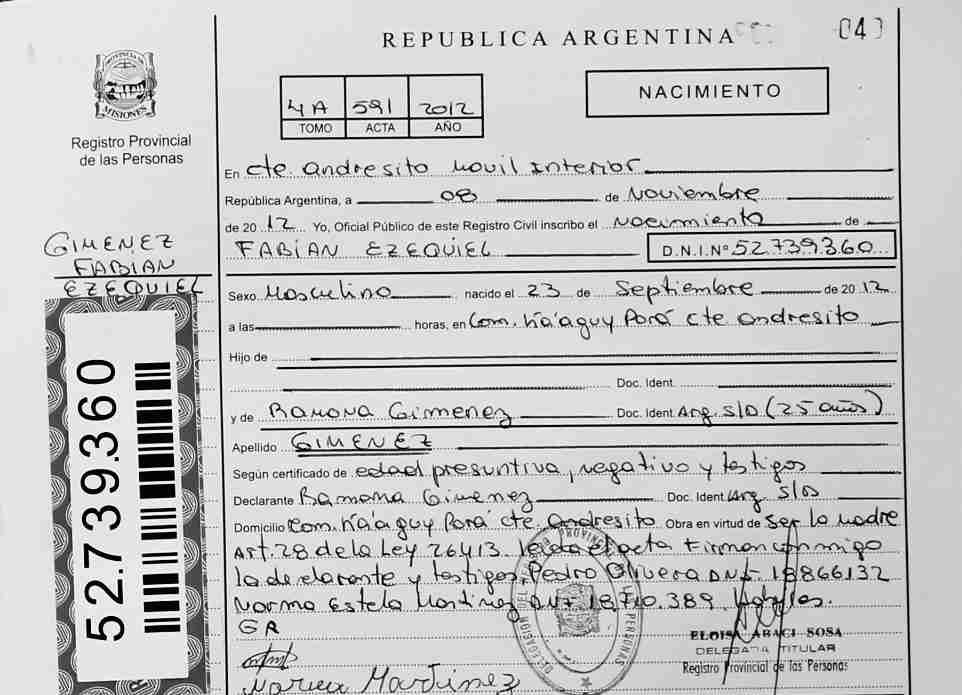 REPUBLICA ARGENTINA
040
PROVINCIA DE MISIONES
Registro Provincial de las Personas
4A 591 2012
TOMO ACTA AÑO
NACIMIENTO
En Cte. Andresito Movil Interior
República Argentina, a 08 de Noviembre
de 2012 Yo, Oficial Público de este Registro Civil inscribo el Nacimiento de
FABIAN EZEQUIEL D.N.I.Nº 52.739.360
GIMENEZ
FABIAN
EZEQUIEL
Sexo Masculino nacido el 23 de Septiembre de 2012
a las horas, en Com. Ka'aguy Porá Cte Andresito
Hijo de
Doc. Ident.
y de Ramona Gimenez Doc. Ident. Arg. S/D (25 años)
Apellido GIMENEZ
Según certificado de edad presuntiva, negativo y testigos
Declarante Ramona Gimenez Doc. Ident. Arg. S/D
Domicilio Com. Ka'aguy Porá Cte. Andresito Obra en virtud de ser la madre
Art. 28 de la Ley 26413. Leida el acta Firman conmigo
la declarante y testigos, Pedro Olivera DNI. 18866132
Norma Estela Martinez DNI. 18.710.389
GR
52.739.360
ELOISA ABACI SOSA
DELEGADA TITULAR
Registro Provincial de las Personas
Martinez